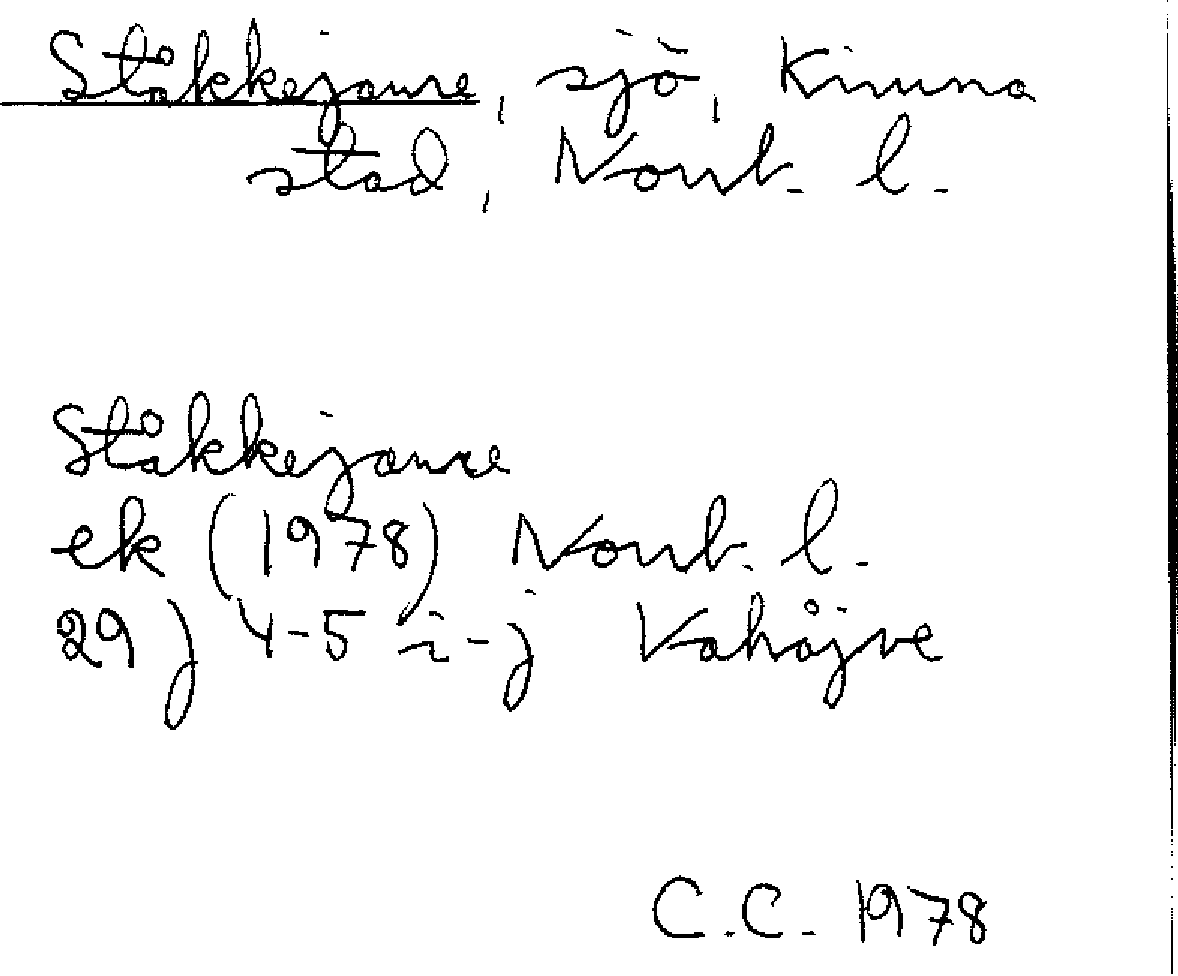 Ståkkejaure, sjö, Kiruna
stad, Norrb. l.
Ståkkejaure
ek (1978) Norrb. l.
29 J 4-5 i-j Kahåjve
C.C. 1978